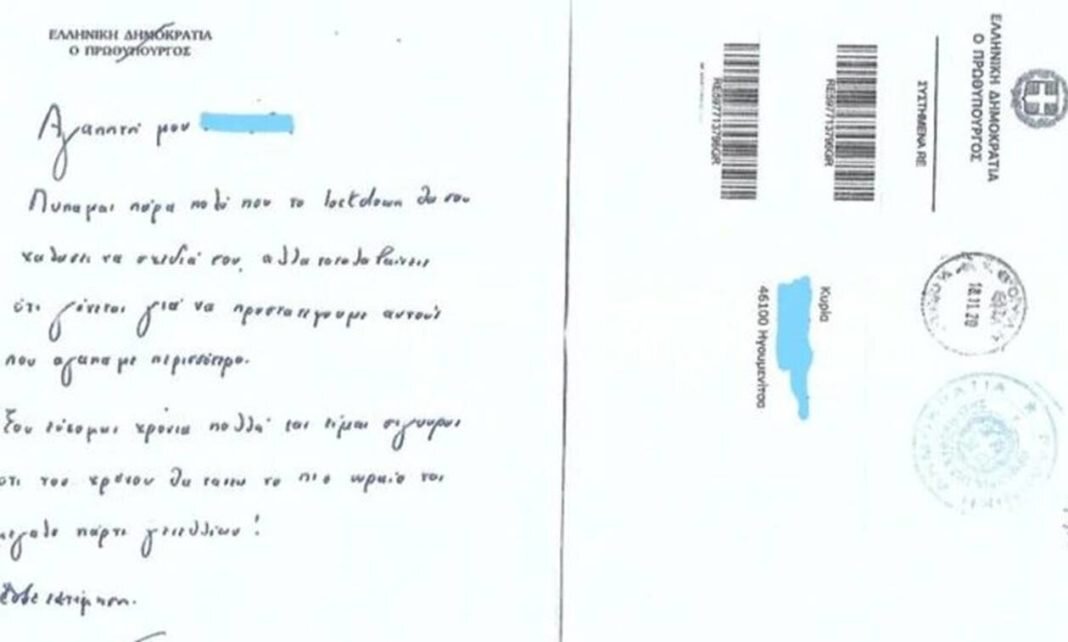 ΕΛΛΗΝΙΚΗ ΔΗΜΟΚΡΑΤΙΑ
Ο ΠΡΩΘΥΠΟΥΡΓΟΣ
Αγαπητή μου
Λυπάμαι πάρα πολύ που το lockdown θα σου
χαλάσει τα σχέδιά σου, αλλά καταλαβαίνεις
ότι γίνεται για να προστατέψουμε αυτούς
που αγαπάμε περισσότερο.
Σου εύχομαι χρόνια πολλά και είμαι σίγουρος
ότι του χρόνου θα κάνεις το πιο ωραίο και
μεγάλο πάρτι γενεθλίων!
Με εκτίμηση.
ΕΛΛΗΝΙΚΗ ΔΗΜΟΚΡΑΤΙΑ
Ο ΠΡΩΘΥΠΟΥΡΓΟΣ
ΣΥΣΤΗΜΕΝΑ RE
RE597713795GR
RE597713795GR
18.11.20
Κυρία
46100 Ηγουμενίτσα